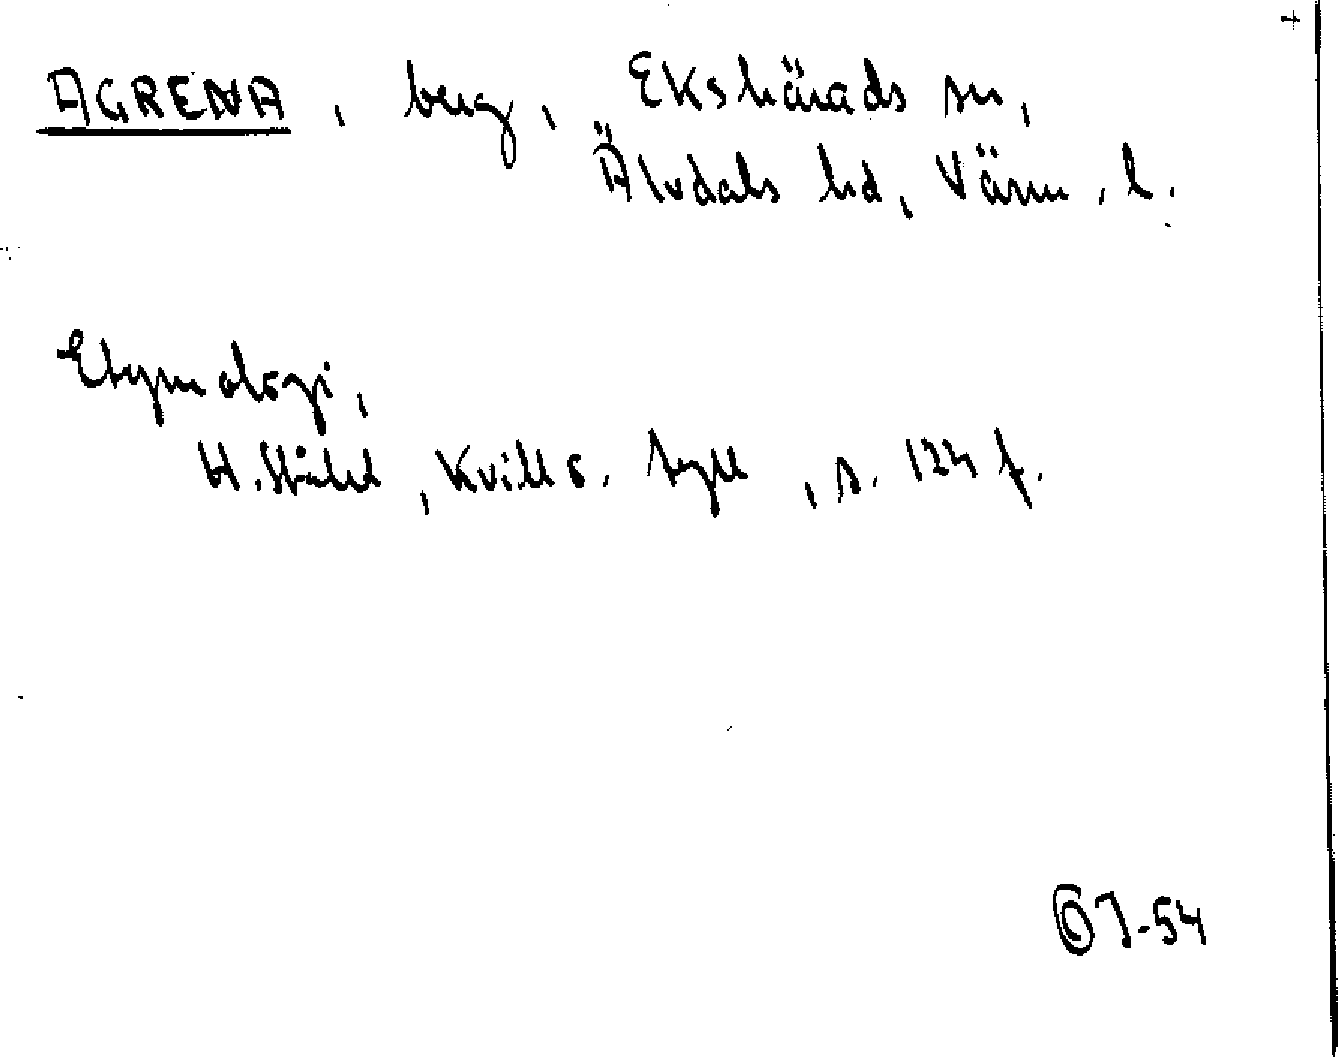 AGRENA, berg, Ekshärads sn,
Älvdals hd, Värml. l.
Etymologi,
H. Ståhl, Kvill o. tyll, s. 124 f.
OJ-54